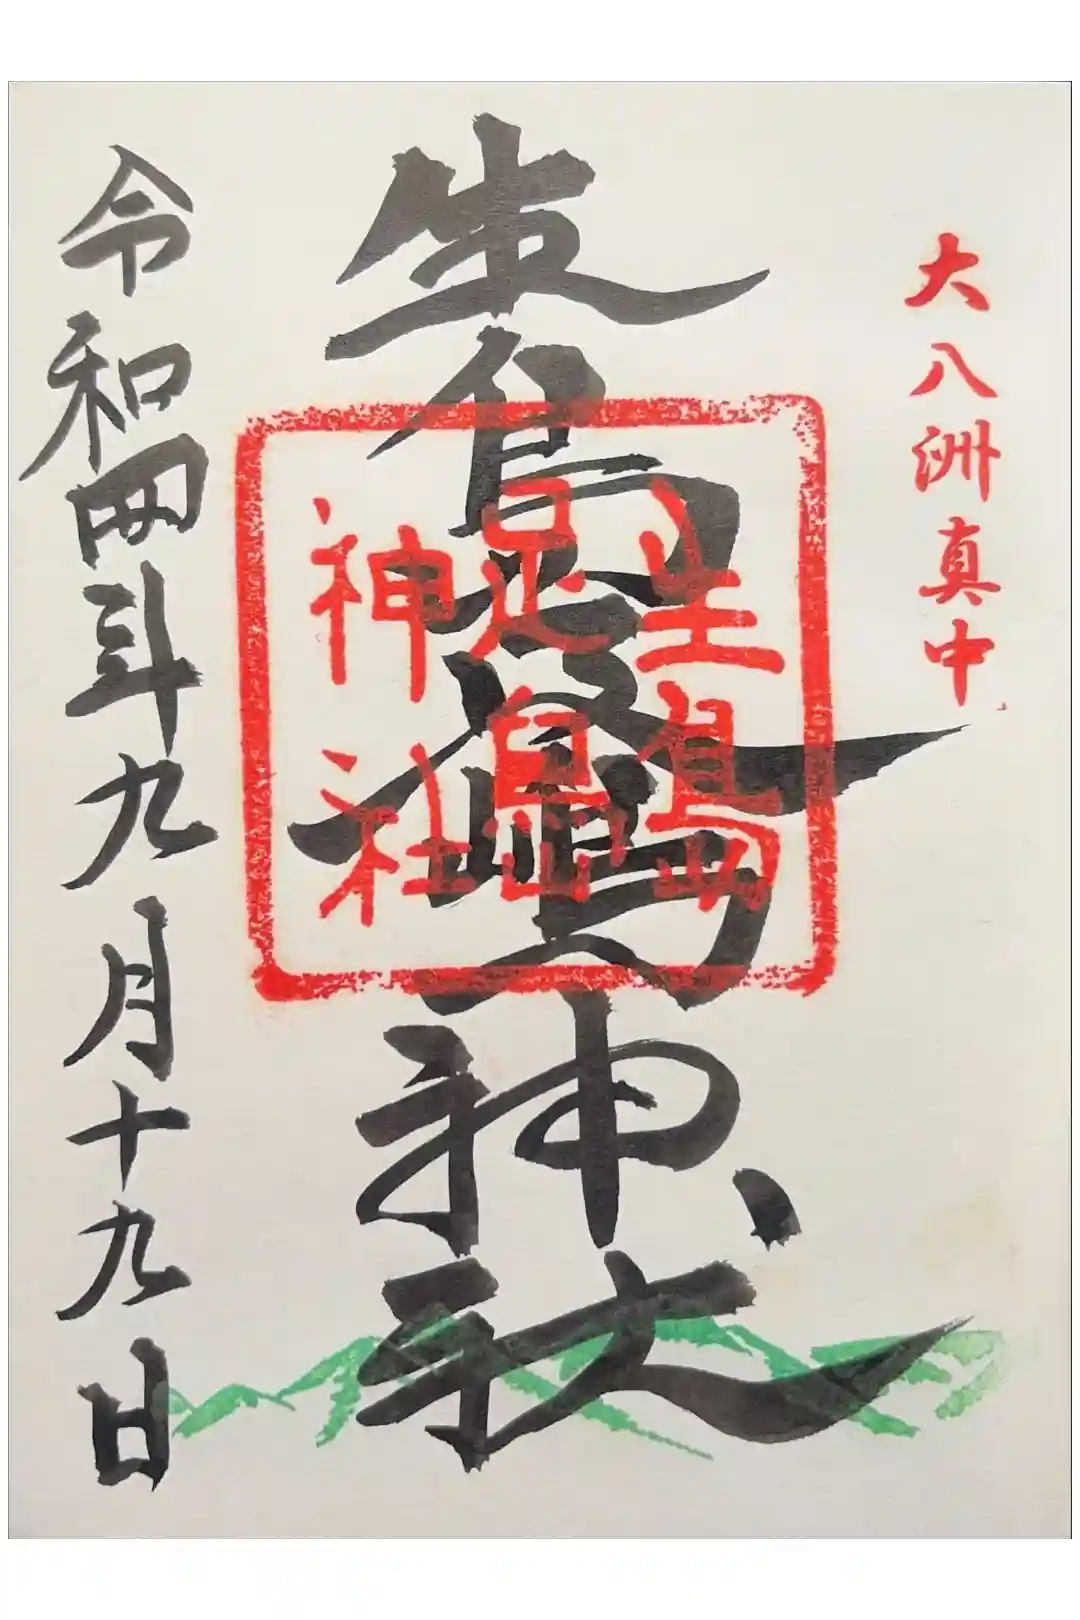 大八洲真中
生島足嶋神社
生島足島神社
令和四年九月十九日